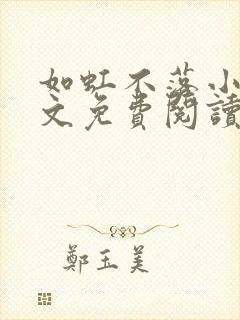 如虹不落小
文免費閱讀
鄭玉美